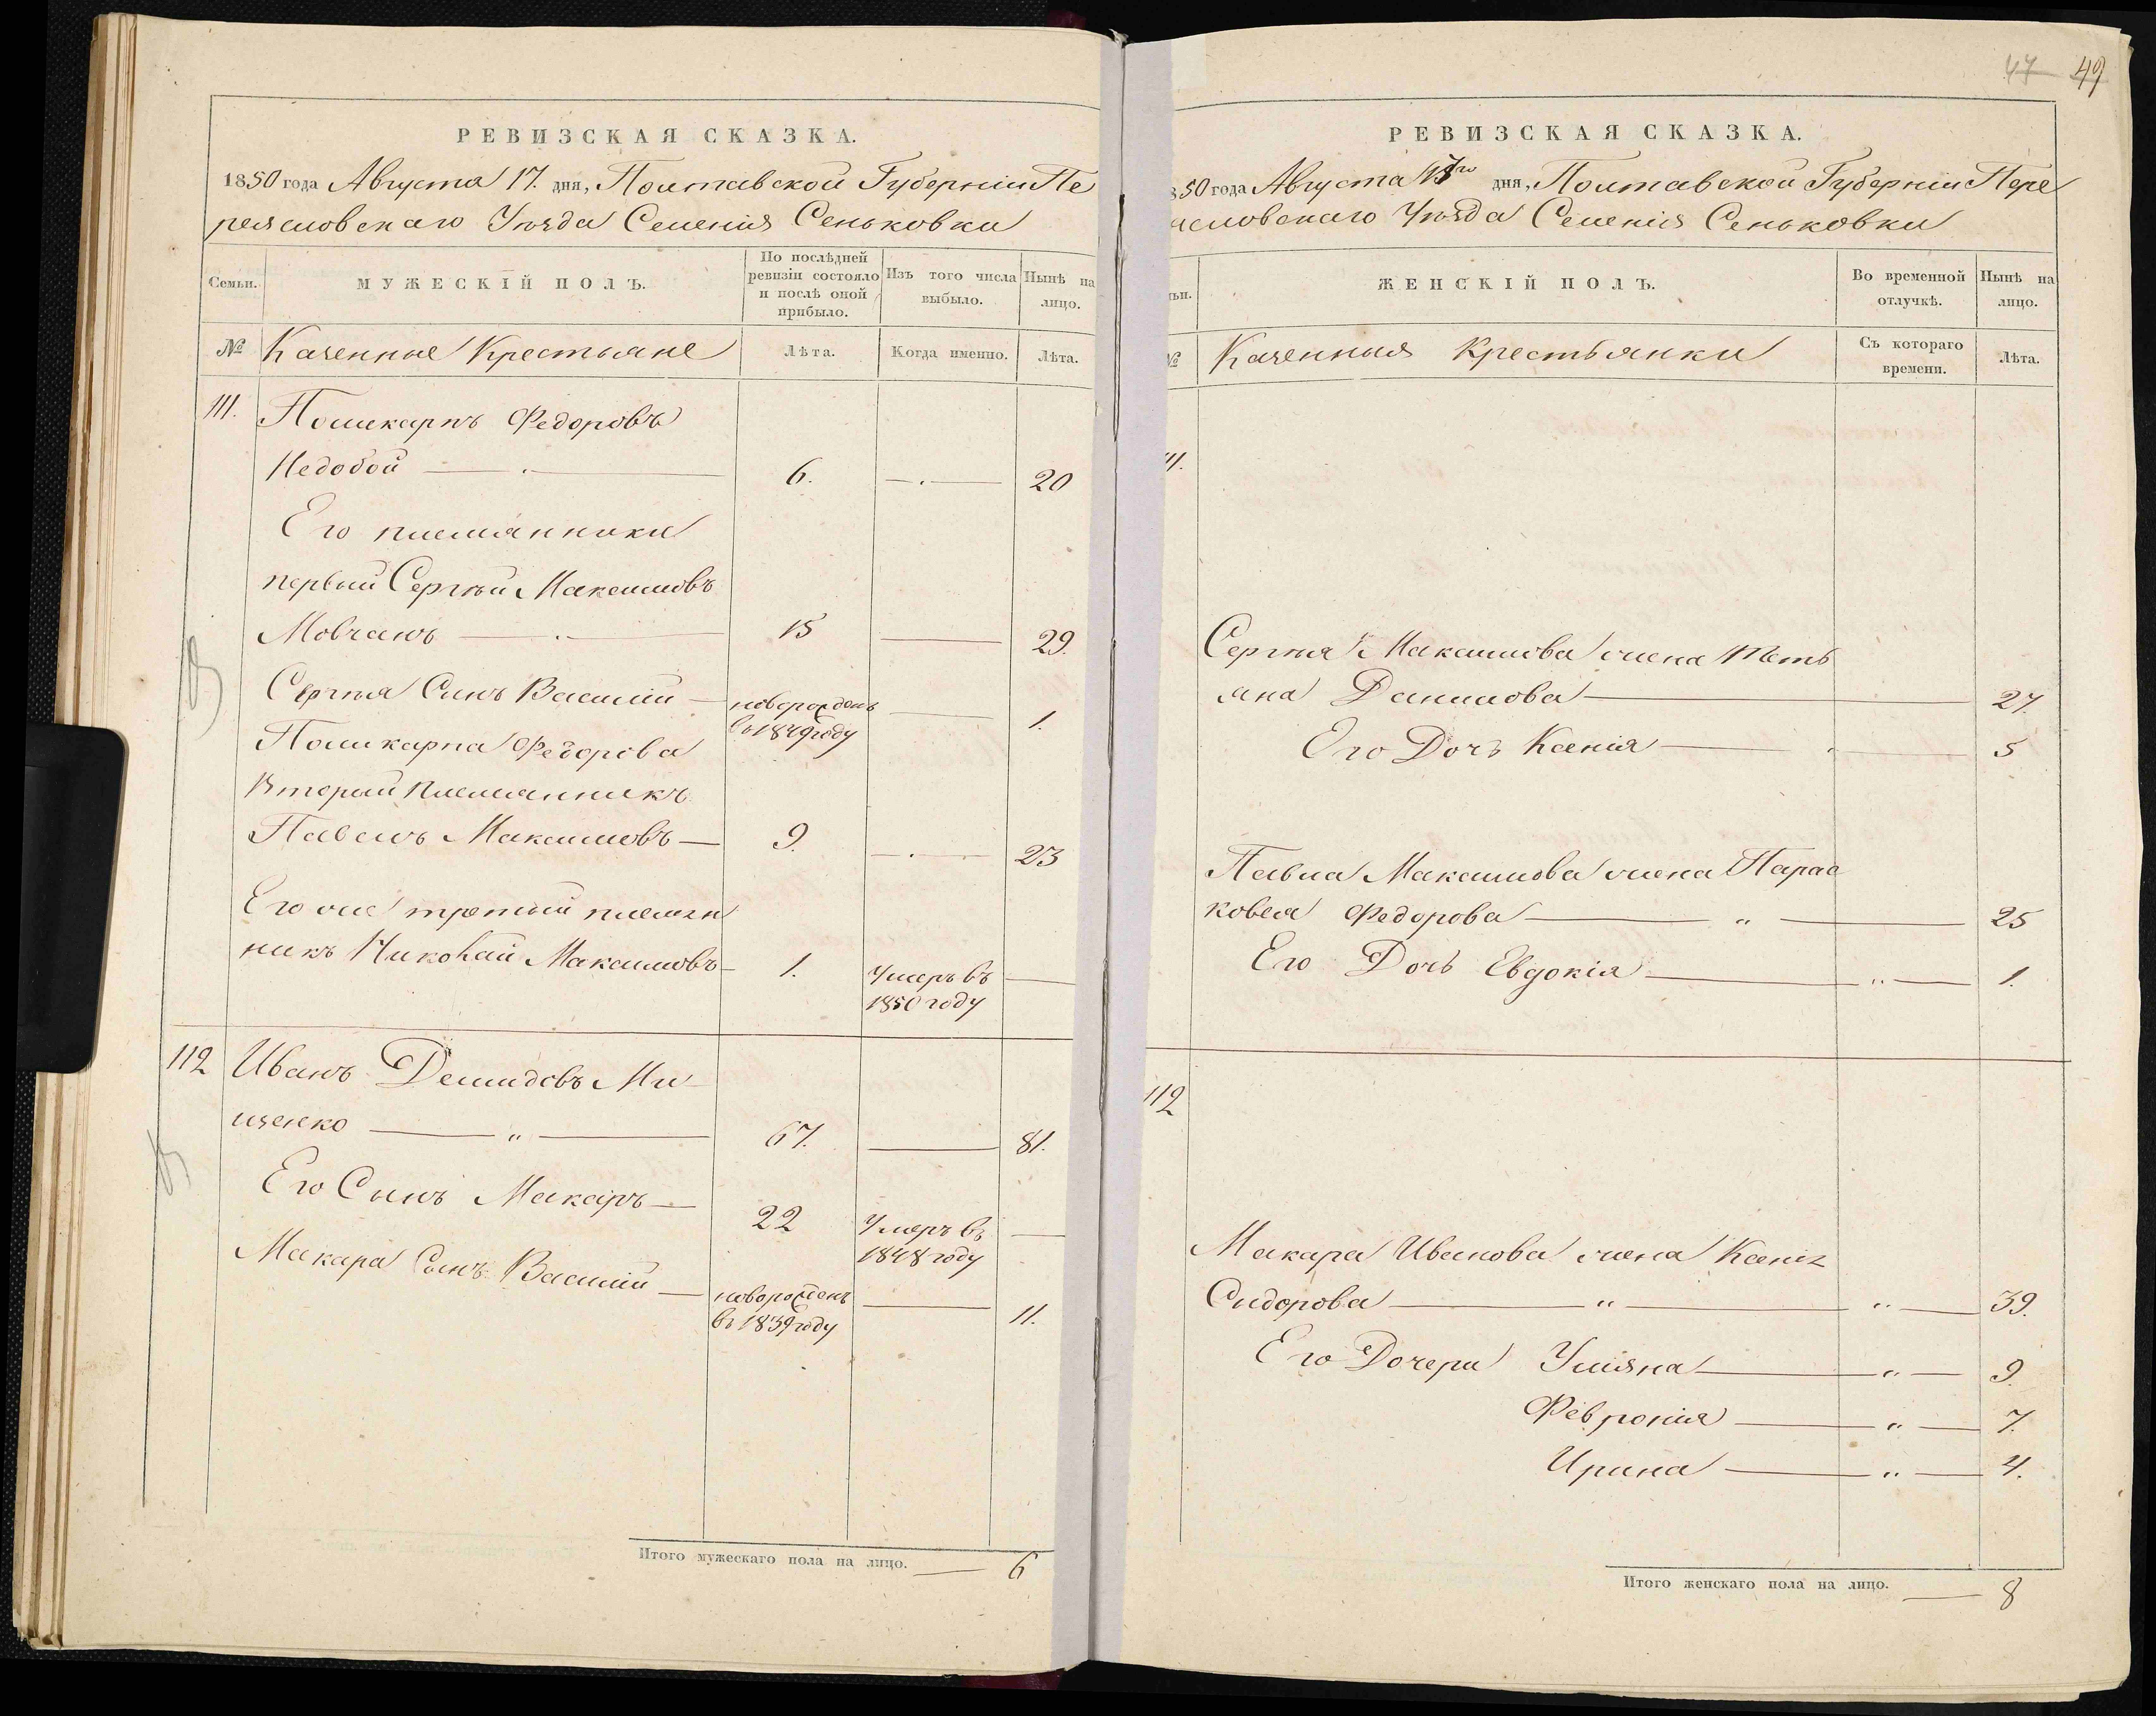 РЕВИЗСКАЯ СКАЗКА.
1850 года Августа 17. дня, Полтавской Губерніи Пе
реясловскаго Уѣзда Селенія Сеньковки
Семьи.
МУЖЕСКІЙ ПОЛЪ.
По послѣдней ревизіи состояло и послѣ оной прибыло.
Изъ того числа выбыло.
Нынѣ на лицо.
№ Казенные Крестьяне Лѣта. Когда именно. Лѣта.
111. Поликарпъ Федоровъ
Недобой 6. 20
Его племянники
первый Сергѣй Максимовъ
Мовчанъ 15 29.
Сергѣя Сынъ Василій новорожденъ 1.
въ 1849 году
Поликарпа Федорова
Вторый племянникъ
Павелъ Максимовъ 9. 23
Его же третий племян
никъ Николай Максимовъ 1. Умеръ въ
1850 году
112 Иванъ Демидовъ Ми
щенко 67. 81.
Его Сынъ Макаръ 22 Умеръ въ
1848 году
Макара Сынъ Василій новорожденъ 11.
въ 1839 году
Итого мужескаго пола на лицо. 6
47 49
РЕВИЗСКАЯ СКАЗКА.
850 года Августа 17го дня, Полтавской Губерніи Пере
ясловскаго Уѣзда Селенія Сеньковки
ьи.
ЖЕНСКІЙ ПОЛЪ.
Во временной отлучкѣ.
Нынѣ на лицо.
№ Казенныя Крестьянки Съ котораго времени. Лѣта.
11.
Сергѣя Максимова жена Тать
яна Данилова 27.
Его Дочь Ксенія 5
Павла Максимова жена Парас
ковея Федорова 25
Его Дочь Евдокія 1.
112
Макара Иванова жена Ксенія
Сидорова 39.
Его Дочери Уліяна 9.
Февронія 7.
Ирина 4.
Итого женскаго пола на лицо. 8